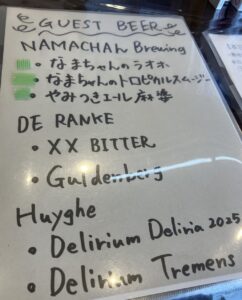 GUEST BEER
NAMACHAN Brewing
・なまちゃんのラオホ
・なまちゃんのトロピカルスムージー
・やみつきエール 麻婆
DE RANKE
• XX BITTER
• Guldenberg
Huyghe
• Delirium Deliria 2025
• Delirium Tremens